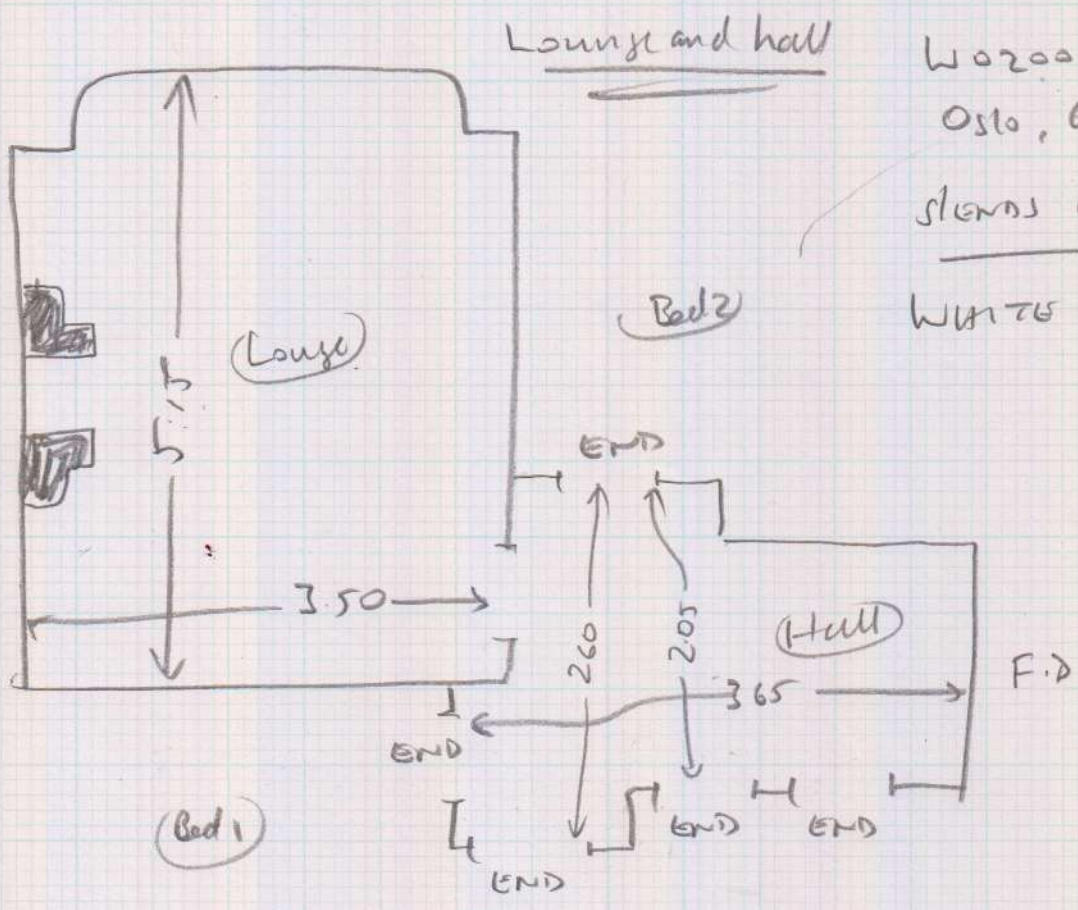 Lounge and hall
W0200
Oslo,
5 ENDS
WHITE
Louge
Bed 2
5.15
END
3.50
260
2.05
Hall
365
F.D
END
Bed 1
END
END
END